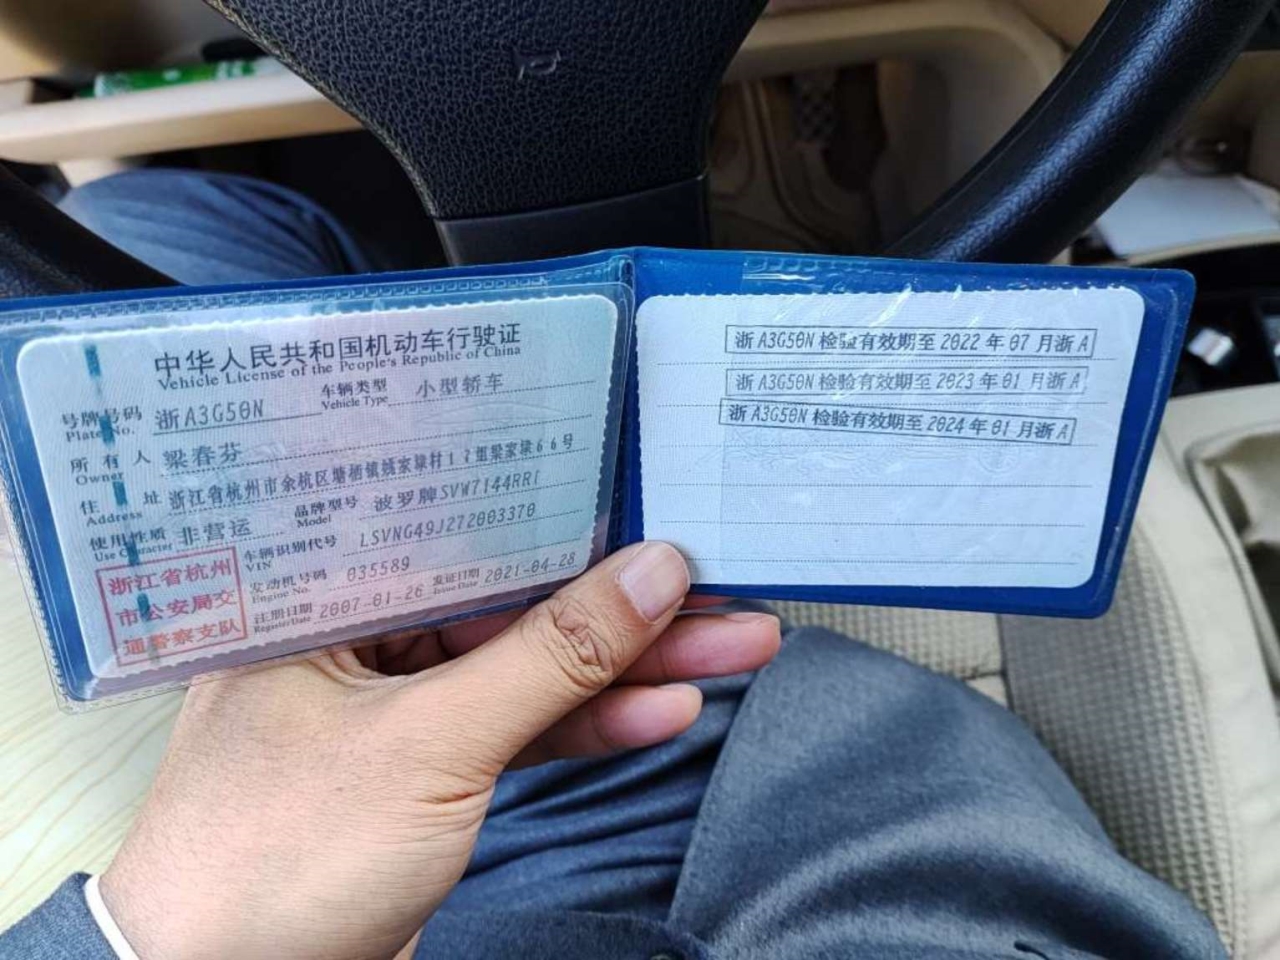 中华人民共和国机动车行驶证
Vehicle License of the People's Republic of China
号牌号码 浙A3G50N 车辆类型 小型轿车
Plate No. Vehicle Type
所有人 梁春芬
Owner
住址 浙江省杭州市余杭区塘栖镇姚家埭村12组梁家埭66号
Address
使用性质 非营运 品牌型号 波罗牌SVW7144RRI
Use Character Model
车辆识别代号 LSVNG49J272003370
VIN
发动机号码 035589
Engine No.
注册日期 2007-01-26 发证日期 2021-04-28
Register Date Issue Date
浙江省杭州
市公安局交
通警察支队
浙A3G50N检验有效期至2022年07月浙A
浙A3G50N检验有效期至2023年01月浙A
浙A3G50N检验有效期至2024年01月浙A